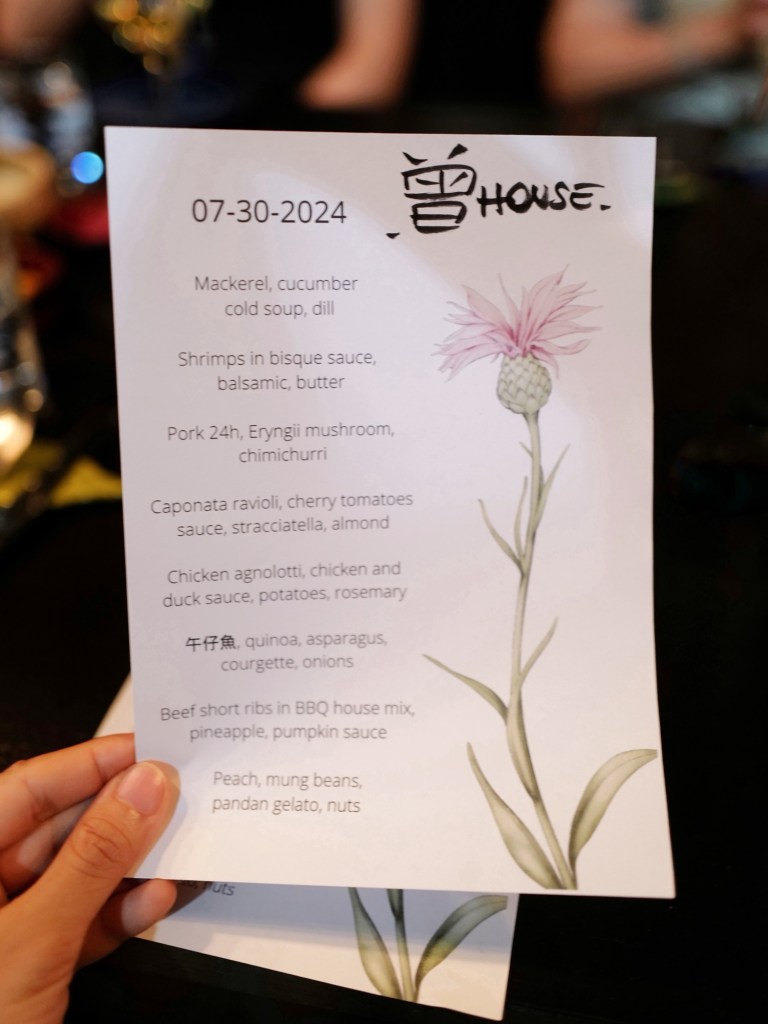 曾HOUSE.
07-30-2024
Mackerel, cucumber
cold soup, dill
Shrimps in bisque sauce,
balsamic, butter
Pork 24h, Eryngii mushroom,
chimichurri
Caponata ravioli, cherry tomatoes
sauce, stracciatella, almond
Chicken agnolotti, chicken and
duck sauce, potatoes, rosemary
午仔魚, quinoa, asparagus,
courgette, onions
Beef short ribs in BBQ house mix,
pineapple, pumpkin sauce
Peach, mung beans,
pandan gelato, nuts
nuts